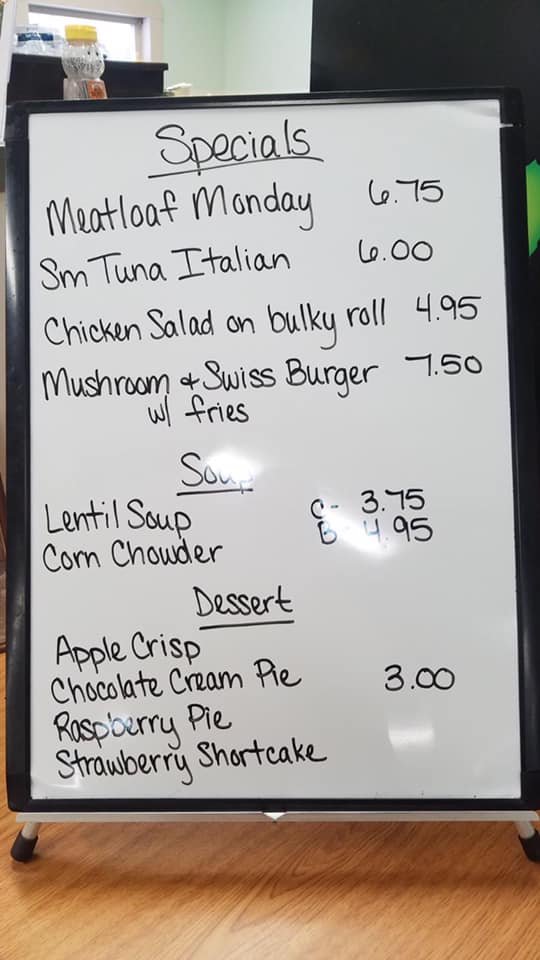 Specials
Meatloaf Monday 6.75
Sm Tuna Italian 6.00
Chicken Salad on bulky roll 4.95
Mushroom & Swiss Burger 7.50
w/ fries
Soup
Lentil Soup C- 3.75
Corn Chowder B 4.95
Dessert
Apple Crisp
Chocolate Cream Pie 3.00
Raspberry Pie
Strawberry Shortcake